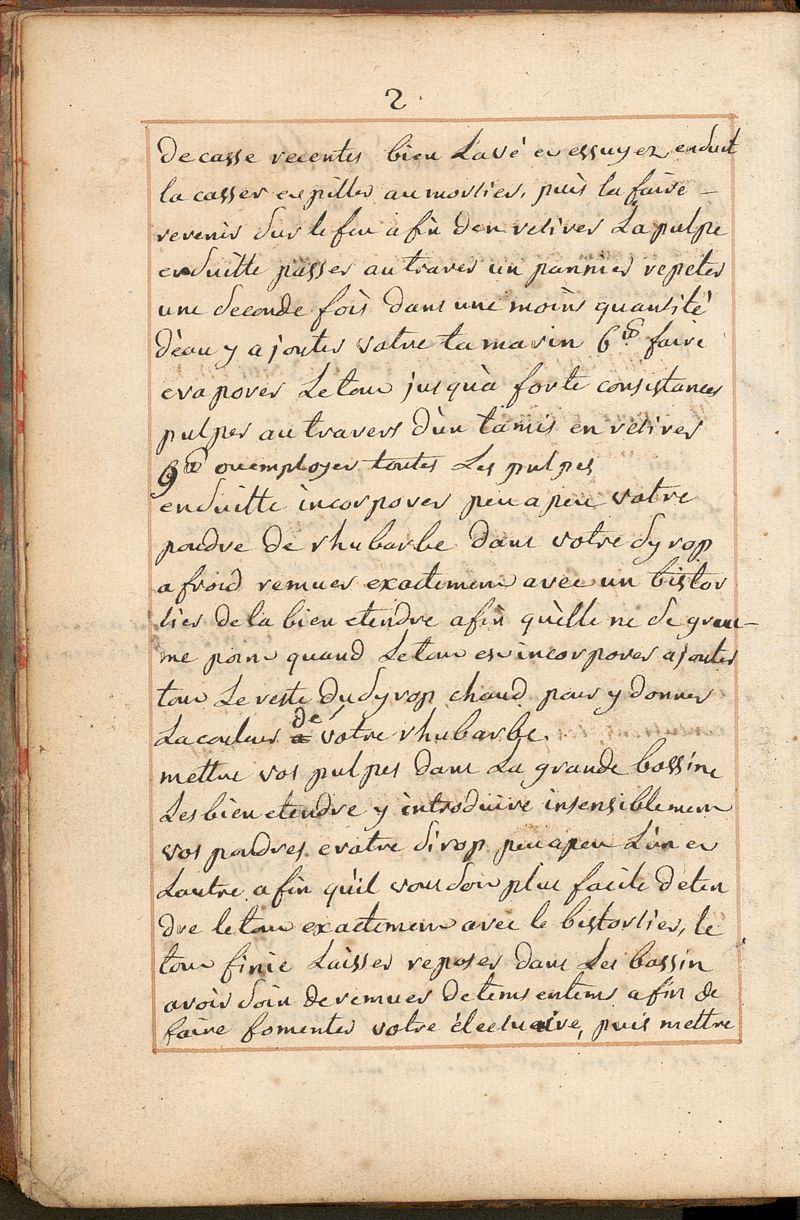 2
de casse recentes bien Lavé et essuyez, ensuit
la casser et piller au mortier, puis la faire –
revenir sur le feu afin den retirer La pulpe
ensuitte passer au traver un pannier repeter
une seconde fois dans une moins quantité
d'eau y ajouter votre tamarin 6 lb faire
evaporer Le tout jusqu'à forte consistances
pulper au travers d'un tamis en retirer
9 lb ou employer toutes Les pulpes
ensuitte incorporer peu a peu votre
poudre de rhubarbe dans votre Syrop
a froid remuer exactement avec un bistor
tier de la bien etendre afin qu'elle ne se grau–
me point quand Le tout est incorporer ajouter
tout Le reste du Syrop chaud pour y donner
La couleur de votre rhubarbe.
mettre vos pulpes dans La grande bassine
Les bien etendre y introduire insensiblement
vos poudres et votre sirop peu a peu L'un et
Lautre afin qu'il vous soit plus facile deten
dre le tout exactement avec le bistortier, le
tout finie Laisser reposer dans Les bassin
avoir soin de remuer de tems en tems afin de
faire fomenter votre électuaire, puis mettre